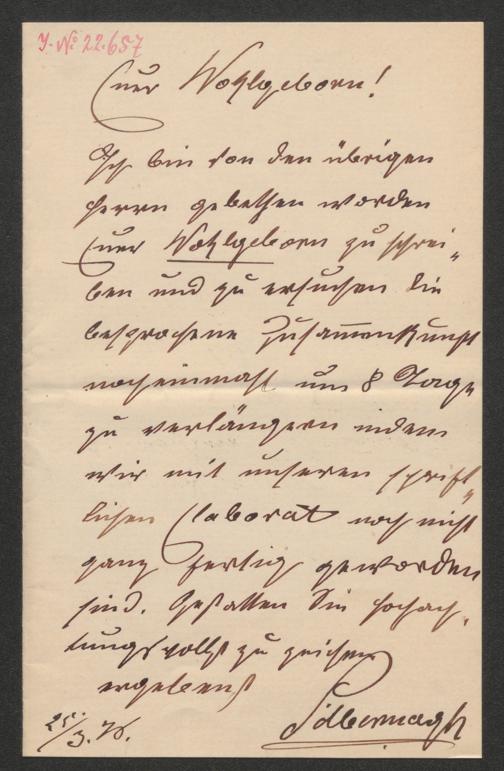 J. No 22.657
Euer Wohlgeborn!
Ich bin von den übrigen
Herrn gebethen worden
Euer Wohlgeborn zu schrei„
ben und zu ersuchen die
besprochene Zusammenkunft
nocheinmahl um 8 Tage
zu verlängern indem
wir mit unseren schrift„
lichen Elaborat noch nicht
ganz fertig geworden
sind. Gestatten Sie hochach„
tungsvollst zu zeichnen
ergebenst
25/3.76. Silbernagl